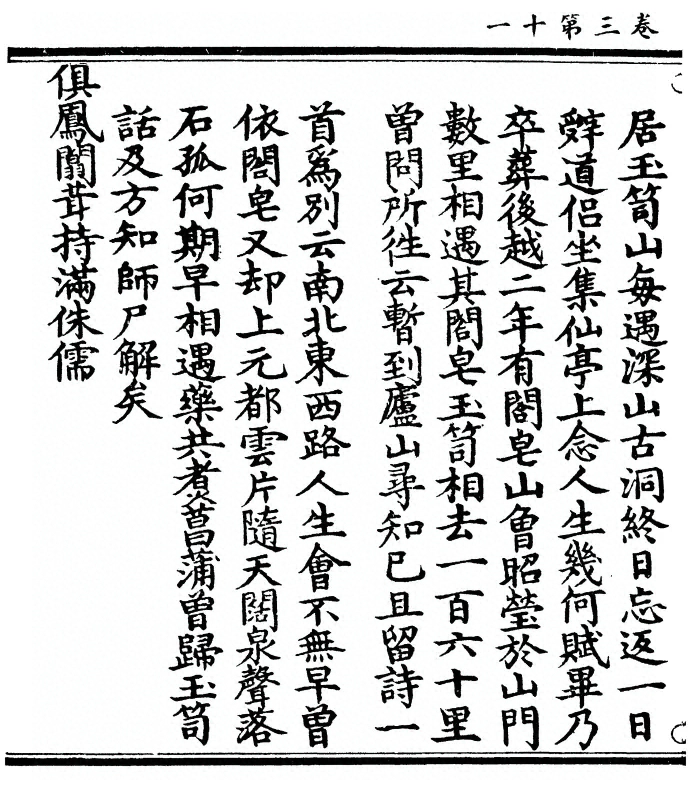 卷三第十一
居玉笥山每遇深山古洞終日忘返一日
辤道侶坐集仙亭上念人生幾何賦畢乃
卒葬後越二年有閤皂山曾昭瑩於山門
數里相遇其閤皂玉笥相去一百六十里
曾問所徃云暫到廬山尋知已且留詩一
首爲別云南北東西路人生會不無早曾
依閤皂又却上元都雲片隨天闊泉聲落
石孤何期早相遇藥共煮菖蒲曾歸玉笥
話及方知師尸解矣
俱鳳闟茸持滿侏儒